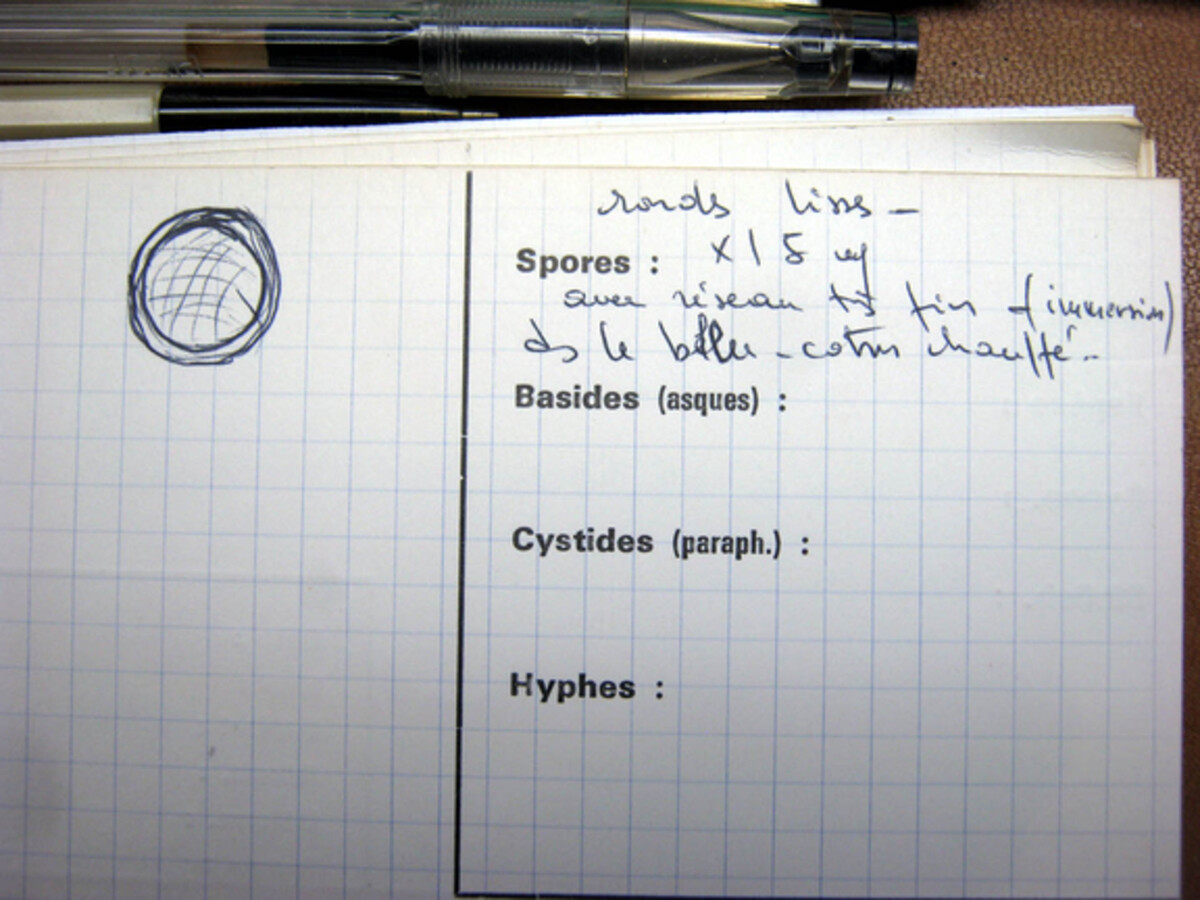 ronds lisses -
Spores : x 15 µ
avec réseau très fin (immersion)
ds le bleu - coton chauffé -
Basides (asques) :
Cystides (paraph.) :
Hyphes :